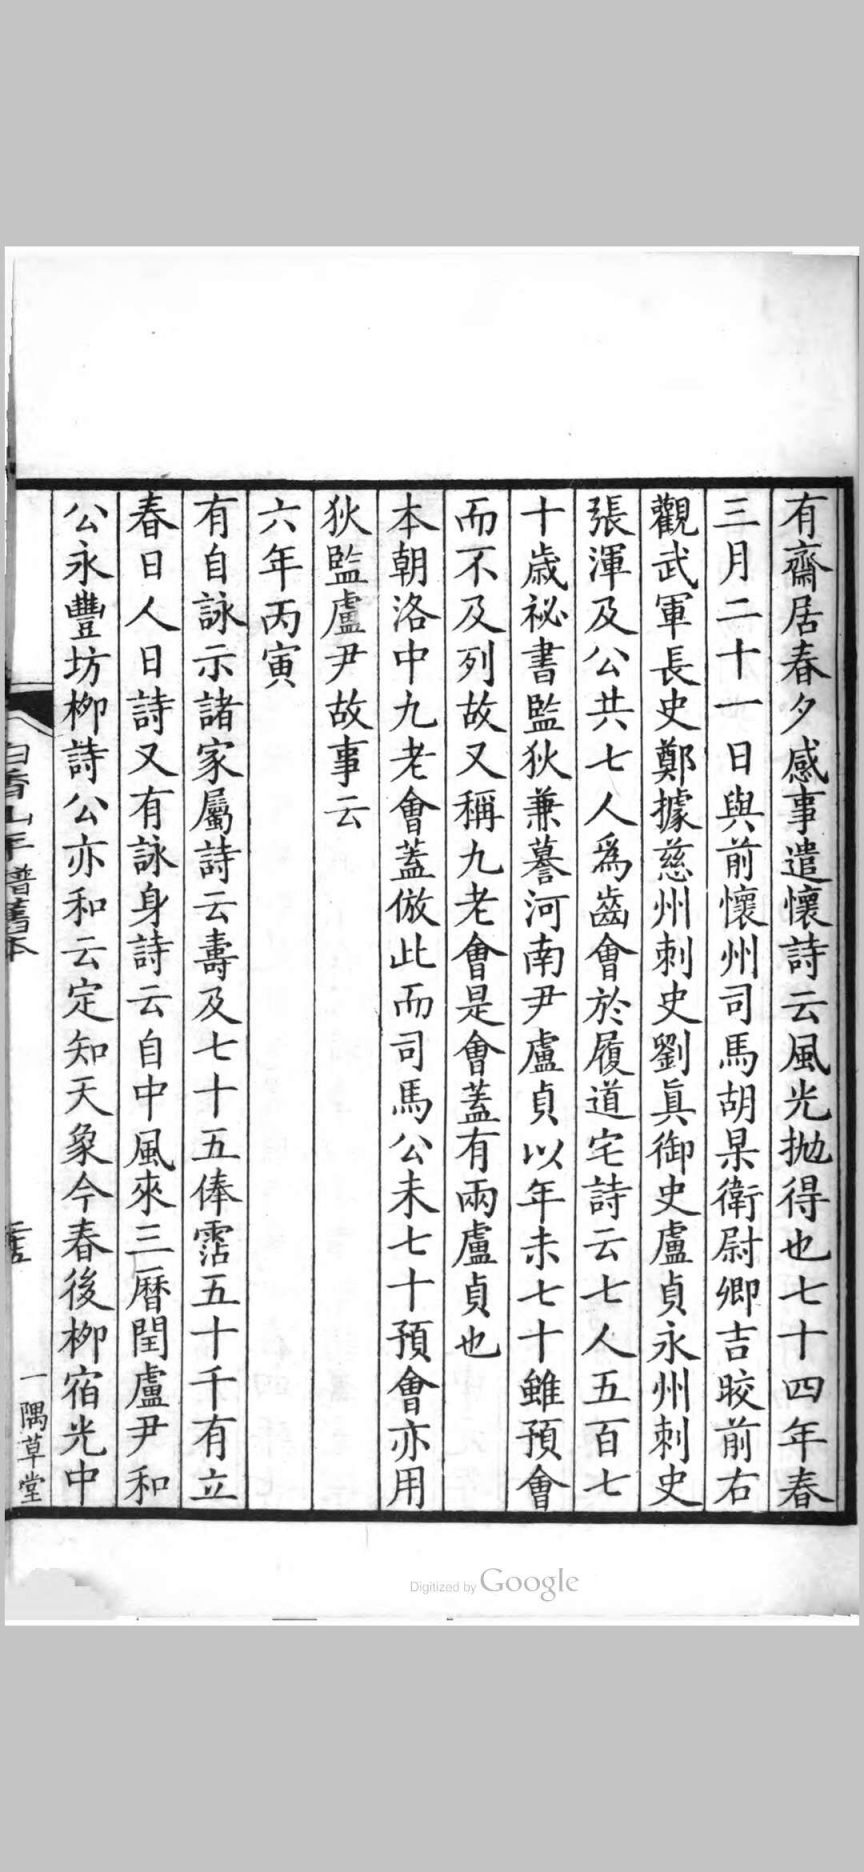 有齋居春夕感事遣懷詩云風光抛得也七十四年春
三月二十一日與前懷州司馬胡杲衛尉卿吉晈前右
觀武軍長史鄭據慈州刺史劉眞御史盧貞永州刺史
張渾及公共七人爲齒會於履道宅詩云七人五百七
十歲祕書監狄兼謩河南尹盧貞以年未七十雖預會
而不及列故又稱九老會是會蓋有兩盧貞也
本朝洛中九老會蓋倣此而司馬公未七十預會亦用
狄監盧尹故事云
六年丙寅
有自詠示諸家屬詩云壽及七十五俸霑五十千有立
春日人日詩又有詠身詩云自中風來三曆閏盧尹和
公永豐坊柳詩公亦和云定知天象今春後柳宿光中
白香山年譜舊本
一隅草堂
Digitized by Google